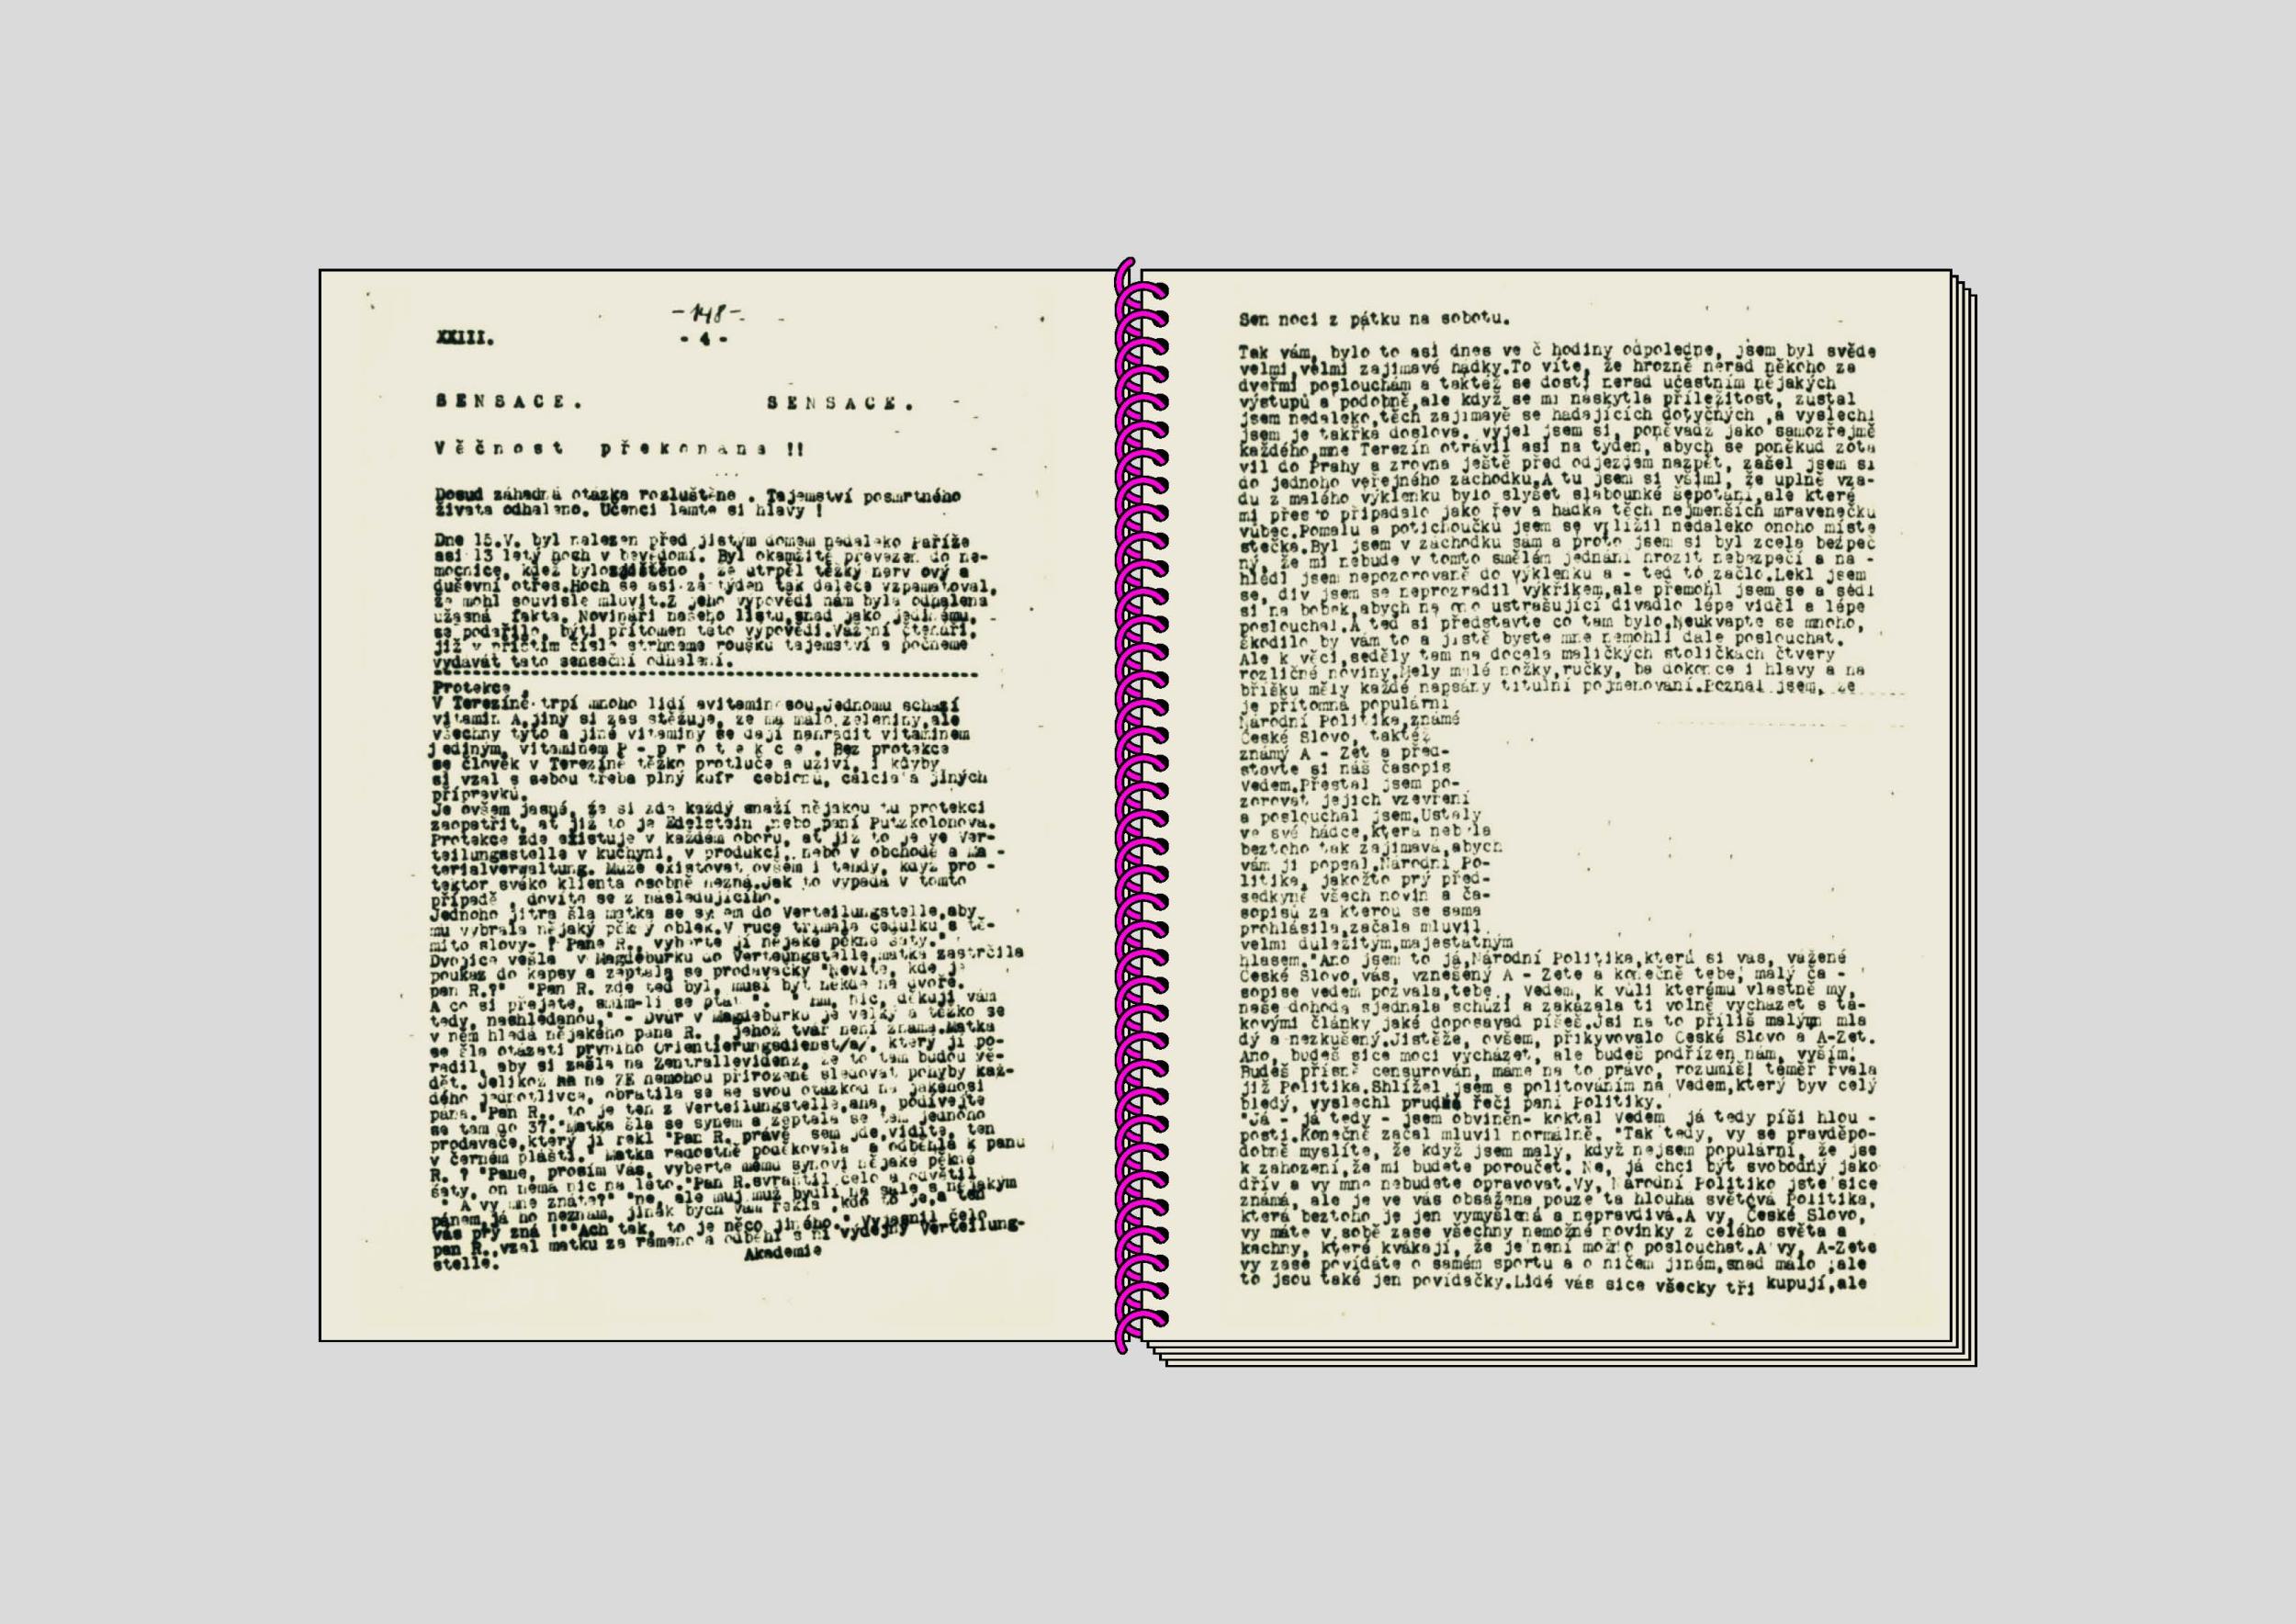 -148-
XXIII. - 4 -
SENSACE. SENSACE.
Věčnost překonana !!
Dosud záhadná otázka rozluštěna . Tajemství posmrtného
života odhaleno. Učenci lamte si hlavy !
Dne 15.V. byl nalezen před jistým domem nedaleko Paříže
asi 13 letý hoch v bevědomí. Byl okamžitě převezen do ne-
mocnice, kdež bylozjištěno , že utrpěl těžký nerv ový a
duševní otřes.Hoch se asi za týden tak dalece vzpamatoval,
že mohl souvisle mluvit.Z jeho výpovědi nám byla odhalena
užasná fakta. Novináři našeho listu,snad jako jedinému,
se podařilo, býti přítomen této výpovědi.Vážení čtenáři,
již v příštím čísle strhneme roušku tajemství a počneme
vydávat tato sensační odhalení.
Protekce .
V Terezíně trpí mnoho lidí avitaminosou.Jednomu schází
vitamin A,jiný si zas stěžuje, že má málo zeleniny,ale
všechny tyto a jiné vitaminy se dají nahradit vitaminem
jediným, vitaminem P - p r o t e k c e . Bez protekce
se člověk v Terezíně těžko protluče a uživí, i kdyby
si vzal s sebou třeba plný kufr cebionu, calcia a jiných
přípravků.
Je ovšem jasné, že si zde každý snaží nějakou tu protekci
zaopatřit, ať již to je Edelstein ,nebo paní Putzkolonova.
Protekce zde existuje v každém oboru, ať již to je ve Ver-
teilungsstelle v kuchyni, v produkci, nebo v obchodě a Ma -
terialverwaltung. Může existovat ovšem i tehdy, když pro -
tektor svého klienta osobně nezná.Jak to vypadá v tomto
případě , dovíte se z následujícího.
Jednoho jitra šla matka se synem do Verteilungstelle,aby
mu vybrala nějaký pěkný oblek.V ruce třímala cedulku s tě-
mito slovy- ? Pane R., vyberte jí nějaké pěkné šaty."
Dvojice vešla v Magdeburku do Verteungstelle,matka zastrčila
poukaz do kapsy a zeptala se prodavačky "Nevíte, kde je
pan R.?" "Pan R. zde teď byl, musí být někde na dvoře.
A co si přejete, smím-li se ptát ". " Hm, nic, děkuji vám
tedy, nashledanou," - Dvůr v Magdeburku je velký a těžko se
v něm hledá nějakého pana R. , jehož tvář není známa.Matka
se šla otázati prvního Orientierungsdienst/a/, který jí po-
radil, aby si zašla na Zentrallevidenz, že to tam budou vě-
dět. Jelikož na ZE nemohou přirozeně sledovat pohyby kaž-
dého jednotlivce, obrátila se se svou otázkou na jakéhosi
pána."Pan R., to je ten z Verteilungstelle,ana, podívejte
se tam do 37."Matka šla se synem a zeptala se tam jednoho
prodavače,který jí řekl "Pan R. právě sem jde,vidíte, ten
v černém plášti." Matka radostně poděkovala a odběhla k panu
R. ? "Pane, prosím Vás, vyberte mému synovi nějaké pěkné
šaty, on nemá nic na léto."Pan R.svraštil čelo a odvětil
" A vy mne znáte?" "ne, ale můj muž bydlí na sále s nějakým
pánem,já ho neznám, jinak bych Vám řekla ,kdo to je,a ten
vás prý zná !""Ach tak, to je něco jiného." Vyjasnil čelo
pan R.,vzal matku za rameno a oběhl s ní výdejny Verteilung-
stelle. Akademie
Sen noci z pátku na sobotu.
Tak vám, bylo to asi dnes ve č hodiny odpoledne, jsem byl svěde
velmi,velmi zajímavé hádky.To víte, že hrozně nerad někoho za
dveřmi poslouchám a taktéž se dosti nerad účastním nějakých
výstupů a podobně,ale když se mi naskytla příležitost, zůstal
jsem nedaleko,těch zajímavě se hádajících dotyčných ,a vyslechl
jsem je takřka doslova. Vyjel jsem si, poněvadž jako samozřejmě
každého,mne Terezín otrávil asi na týden, abych se poněkud zota
vil do Prahy a zrovna ještě před odjezdem nazpět, zašel jsem si
do jednoho veřejného záchodku.A tu jsem si všiml, že uplně vza-
du z malého výklenku bylo slyšet slabounké šepotání,ale které
mi přesto připadalo jako řev a hádka těch nejmenších mravenečků
vůbec.Pomalu a potichoučku jsem se vplížil nedaleko onoho míste
stečka.Byl jsem v záchodku sám a proto jsem si byl zcela bezpeč
ný, že mi nebude v tomto smělém jednání hrozit nebezpečí a na -
hlédl jsem nepozorovaně do výklenku a - teď to začlo.Lekl jsem
se, div jsem se neprozradil výkřikem,ale přemohl jsem se a sedl
si na bobek,abych na ono ustrašující divadlo lépe viděl a lépe
poslouchal.A teď si představte co tam bylo.Neukvapte se mnoho,
škodilo by vám to a jistě byste mne nemohli dále poslouchat.
Ale k věci,seděly tam na docela maličkých stoličkách čtvery
rozličné noviny.Měly malé nožky,ručky, ba dokonce i hlavy a na
bříšku měly každé napsány titulní pojmenování.Poznal jsem, že
je přítomna populární
Národní Politika,známé
České Slovo, taktéž
známý A - Zet a před-
stavte si náš časopis
Vedem.Přestal jsem po-
zorovat jejich vzevření
a poslouchal jsem.Ustaly
ve své hádce,která nebyla
beztoho tak zajímavá,abych
vám ji popsal.Národní Po-
litika, jakožto prý před-
sedkyně všech novin a ča-
sopisů za kterou se sama
prohlásila,začala mluvil
velmi důležitým,majestátným
hlasem."Ano jsem to já,Národní Politika,která si vás, vážené
České Slovo,vás, vznešený A - Zete a konečně tebe, malý ča -
sopise vedem pozvala,tebe , Vedem, k vůli kterému vlastně my,
naše dohoda sjednala schůzi a zakázala ti volně vycházet s ta-
kovými články jaké doposavad píšeš.Jsi na to příliš malým mla
dý a nezkušený.Jistěže, ovšem, přikyvovalo České Slovo a A-Zet.
Ano, budeš sice moci vycházet, ale budeš podřízen nám, vyším.
Budeš přísně censurován, máme na to právo, rozumíš! téměř řvala
již Politika.Shlížel jsem s politováním na Vedem,který byv celý
bledý, vyslechl prudké řeči paní Politiky.
"Já - já tedy - jsem obviněn- koktal Vedem já tedy píši hlou -
posti.Konečně začal mluvil normálně. "Tak tedy, vy se pravděpo-
dobně myslíte, že když jsem malý, když nejsem populární, že jse
k zahození,že mi budete poroučet. Ne, já chci být svobodný jako
dřív a vy mne nebudete opravovat.Vy, Národní Politiko jste sice
známá, ale je ve vás obsažena pouze ta hlouhá světová Politika,
která beztoho je jen vymyšlená a nepravdivá.A vy, České Slovo,
vy máte v sobě zase všechny nemožné novinky z celého světa a
kachny, které kvákají, že je není možno poslouchat.A vy, A-Zete
vy zase povídáte o samém sportu a o ničem jiném,snad málo ,ale
to jsou také jen povídačky.Lidé vás sice všecky tři kupují,ale